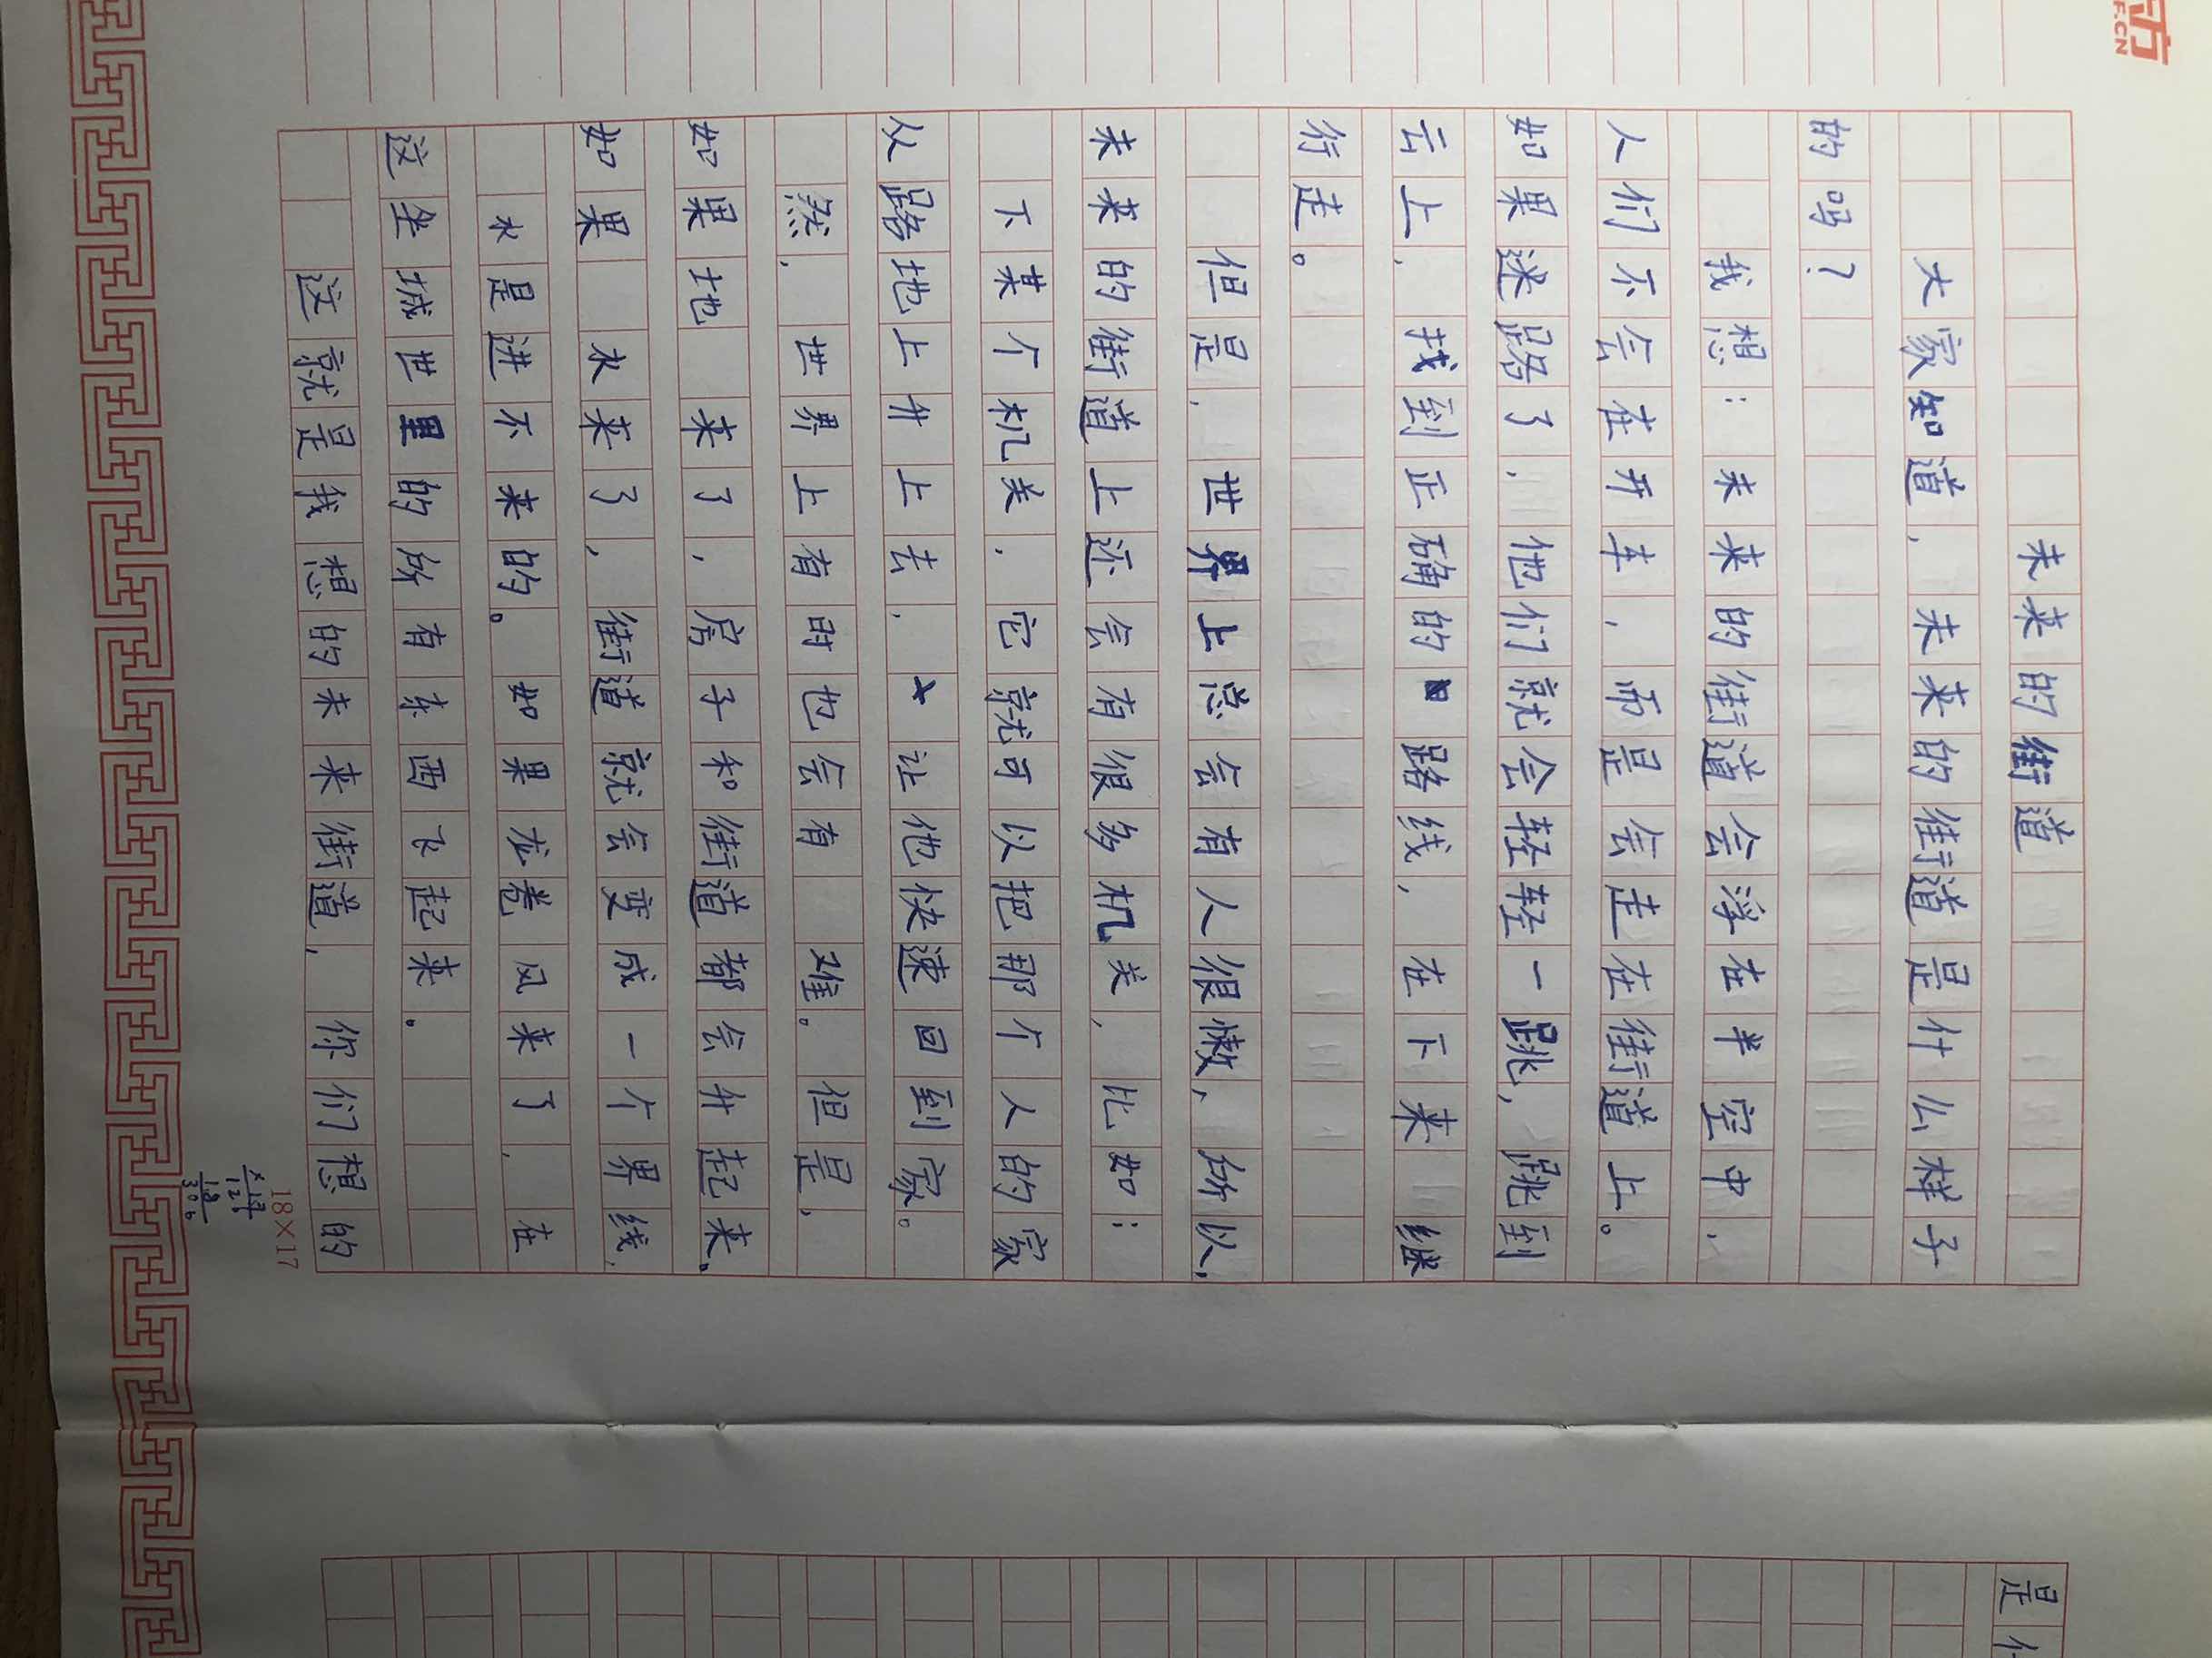 未来的街道
大家知道，未来的街道是什么样子
的吗？
我想：未来的街道会浮在半空中，
人们不会在开车，而是会走在街道上。
如果迷路了，他们就会轻轻一跳，跳到
云上，找到正确的路线，在下来继
行走。
但是，世界上总会有人很懒，所以，
未来的街道上还会有很多机关，比如：
下某个机关，它就可以把那个人的家
从路地上升上去，让他快速回到家。
然，世界上有时也会有 难。但是，
如果地 来了，房子和街道都会升起来。
如果 水来了，街道就会变成一个界线，
水是进不来的。如果龙卷风来了，在
这坐城世里的所有东西飞起来。
这就是我想的未来街道，你们想的
18×17
126
18
306
是
F.CN